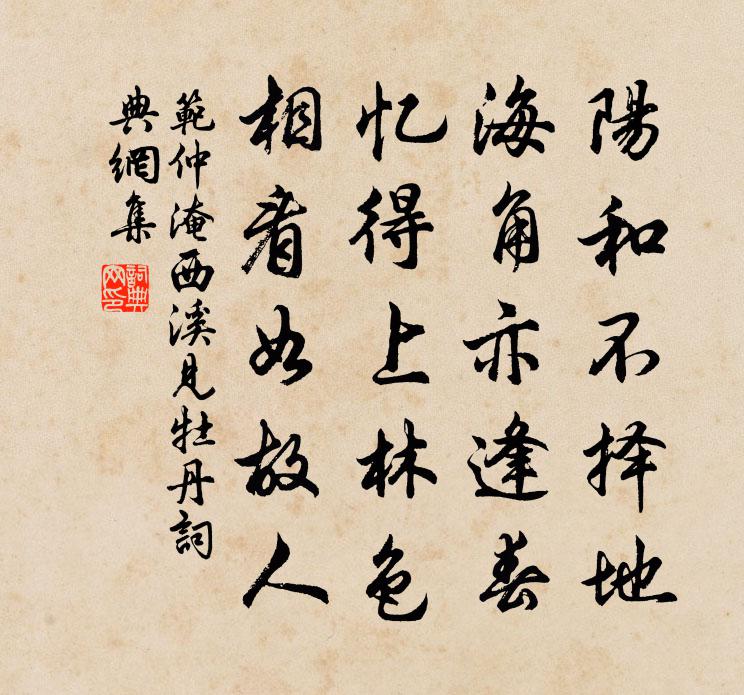 陽和不择地
海角亦逢春
忆得上林色
相看如故人
範仲淹西溪見牡丹詞
典網集
詞典网印